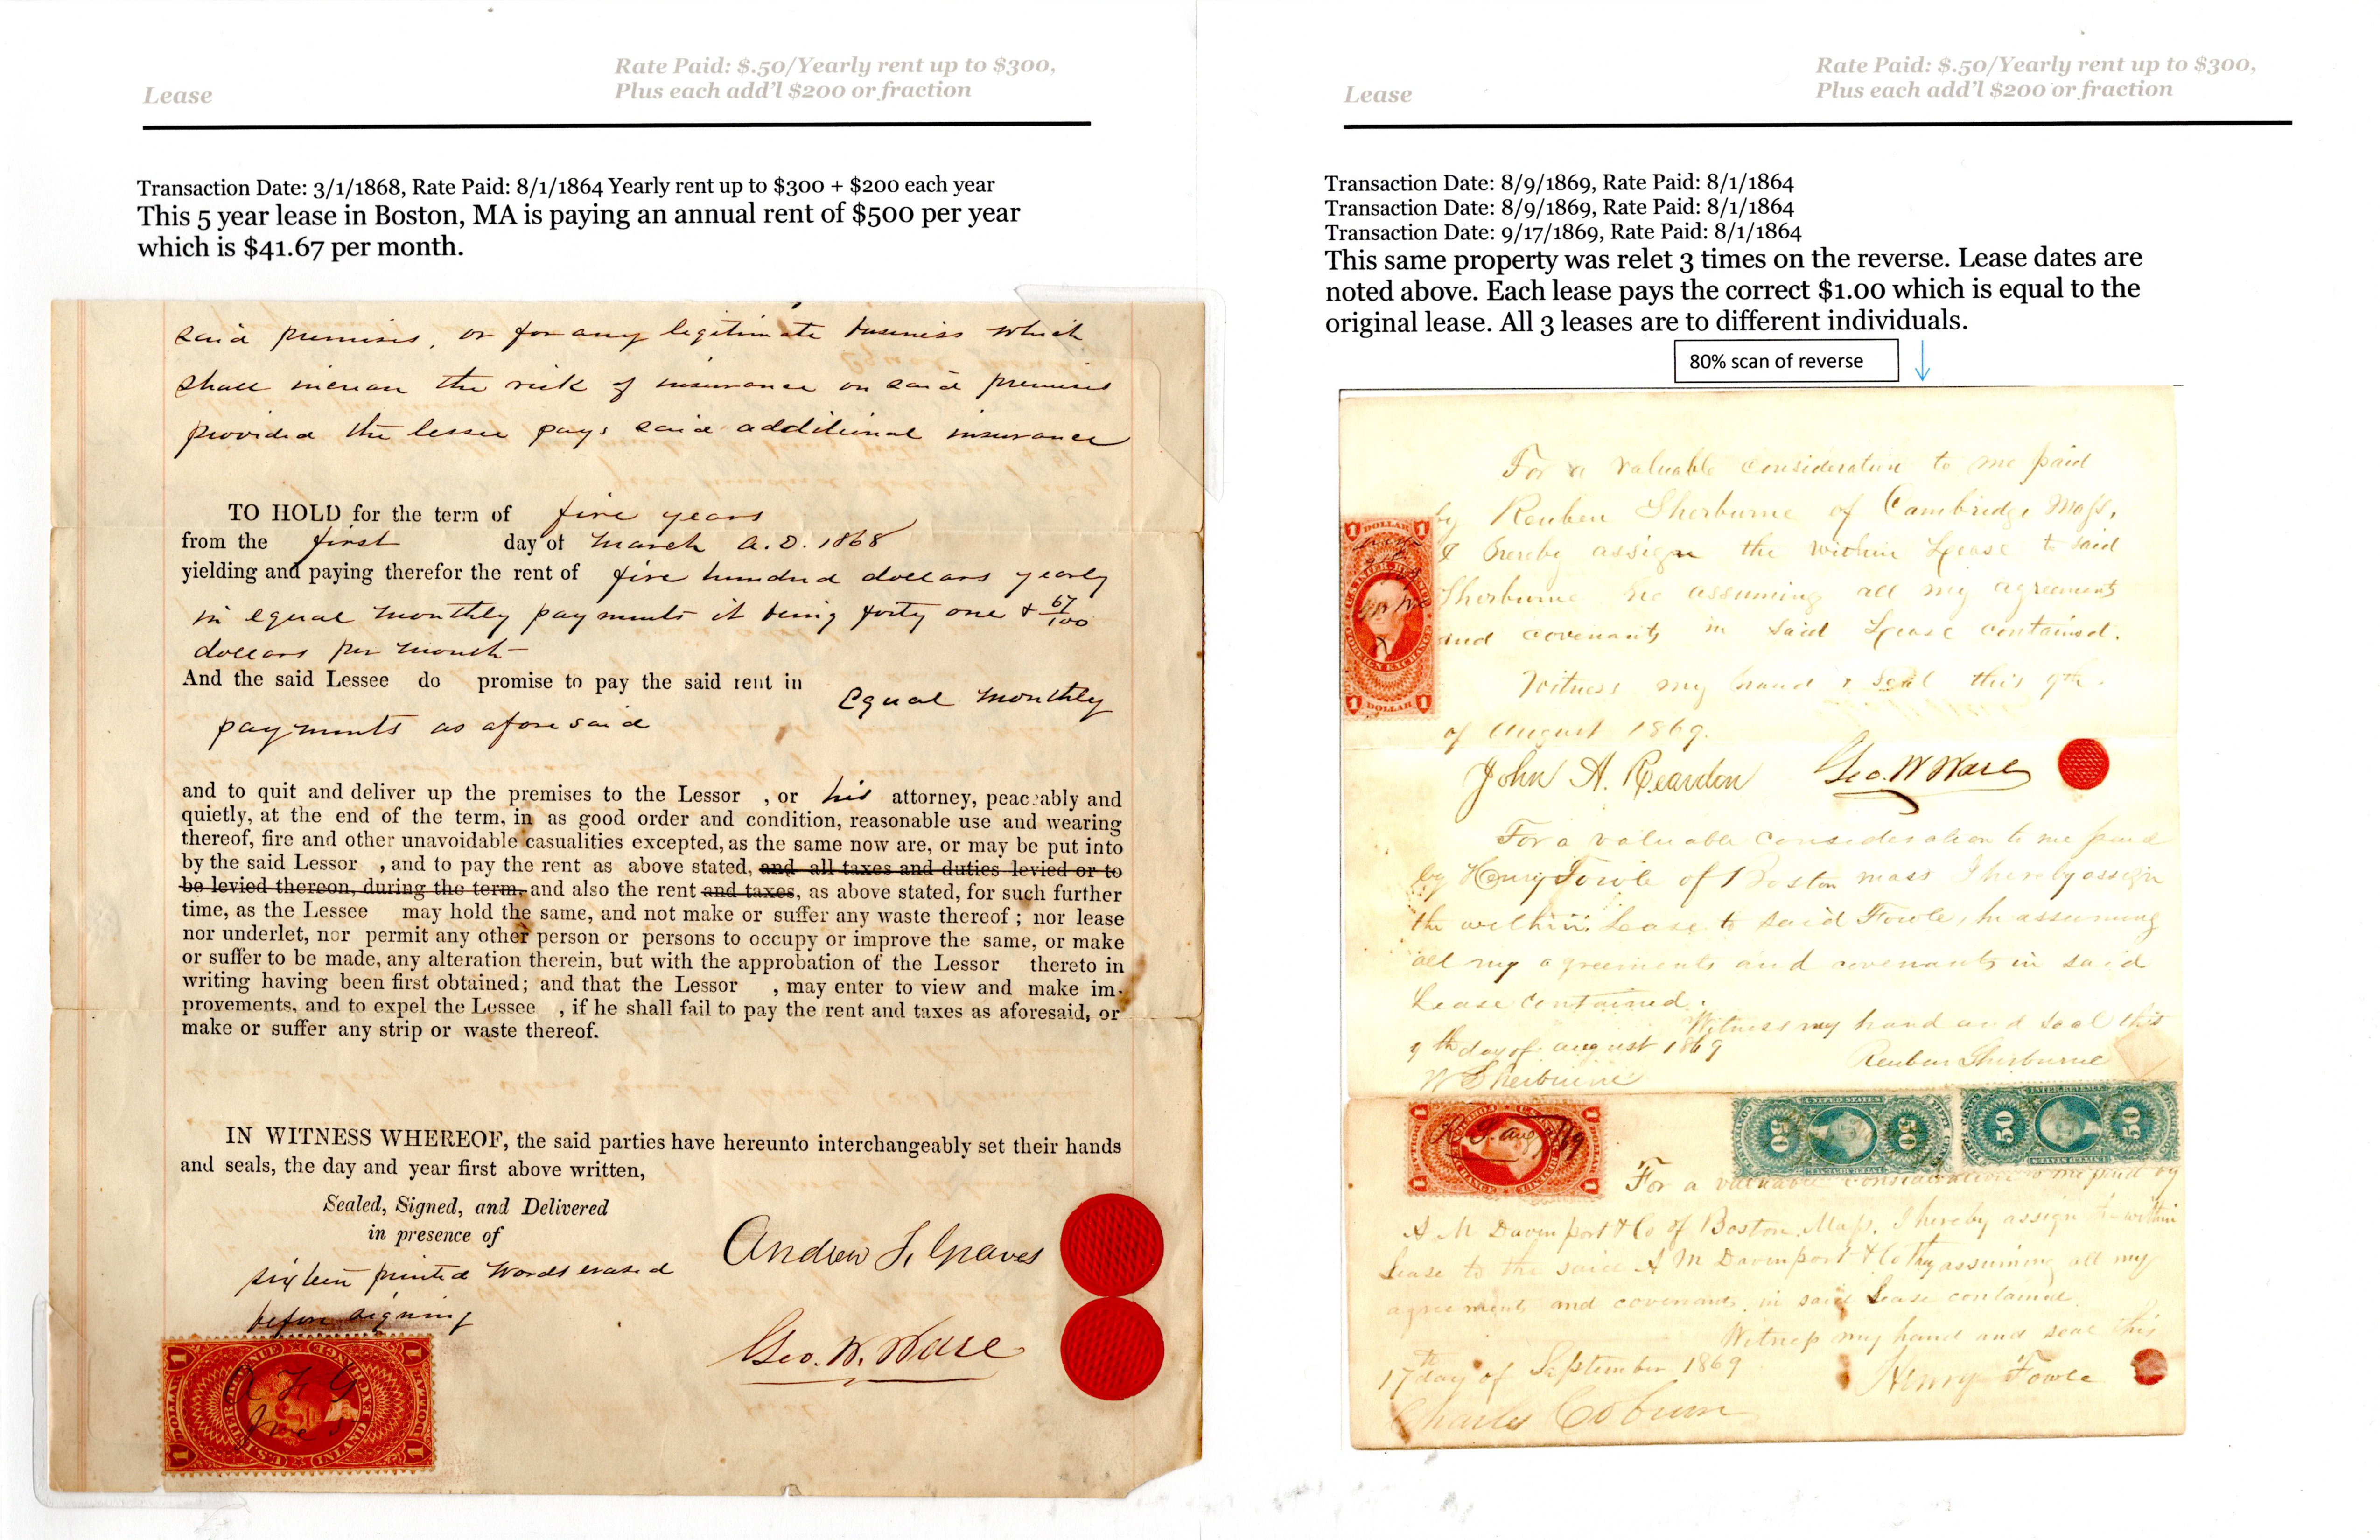 Lease
Rate Paid: $.50/Yearly rent up to $300,
Plus each add'l $200 or fraction
Transaction Date: 3/1/1868, Rate Paid: 8/1/1864 Yearly rent up to $300 + $200 each year
This 5 year lease in Boston, MA is paying an annual rent of $500 per year
which is $41.67 per month.
said premises, or for any legitimate business which
shall increase the risk of insurance on said premises
provided the lessee pays said additional insurance
TO HOLD for the term of five years
from the first day of March A.D. 1868
yielding and paying therefor the rent of five hundred dollars yearly
in equal monthly payments it being forty one & 67/100
dollars per month
And the said Lessee do promise to pay the said rent in Equal monthly
payments as aforesaid
and to quit and deliver up the premises to the Lessor , or his attorney, peaceably and
quietly, at the end of the term, in as good order and condition, reasonable use and wearing
thereof, fire and other unavoidable casualities excepted, as the same now are, or may be put into
by the said Lessor , and to pay the rent as above stated, and all taxes and duties levied or to
be levied thereon, during the term, and also the rent and taxes, as above stated, for such further
time, as the Lessee may hold the same, and not make or suffer any waste thereof ; nor lease
nor underlet, nor permit any other person or persons to occupy or improve the same, or make
or suffer to be made, any alteration therein, but with the approbation of the Lessor thereto in
writing having been first obtained; and that the Lessor , may enter to view and make im-
provements, and to expel the Lessee , if he shall fail to pay the rent and taxes as aforesaid, or
make or suffer any strip or waste thereof.
IN WITNESS WHEREOF, the said parties have hereunto interchangeably set their hands
and seals, the day and year first above written,
Sealed, Signed, and Delivered
in presence of
sixteen printed words erased
before signing
Andrew F. Graves
Geo. W. Ware
Lease
Rate Paid: $.50/Yearly rent up to $300,
Plus each add'l $200 or fraction
Transaction Date: 8/9/1869, Rate Paid: 8/1/1864
Transaction Date: 8/9/1869, Rate Paid: 8/1/1864
Transaction Date: 9/17/1869, Rate Paid: 8/1/1864
This same property was relet 3 times on the reverse. Lease dates are
noted above. Each lease pays the correct $1.00 which is equal to the
original lease. All 3 leases are to different individuals.
80% scan of reverse
For a valuable consideration to me paid
by Reuben Sherburne of Cambridge Mass,
I hereby assign the within Lease to said
Sherburne he assuming all my agreements
and covenants in said Lease contained.
Witness my hand & Seal this 9th
of August 1869.
John A. Reardon Geo. W Ware
For a valuable consideration to me paid
by Henry Fowle of Boston mass I hereby assign
the within Lease to said Fowle, he assuming
all my agreements and covenants in said
Lease contained.
Witness my hand and seal this
9th day of august 1869
Reuben Sherburne
W Sherburne
For a valuable consideration to me paid by
A M Davenport & Co of Boston Mass. I hereby assign the within
Lease to the said A M Davenport & Co they assuming all my
agreements and covenants in said Lease contained
Witness my hand and seal this
17th day of September 1869
Henry Fowle
Charles Coburn